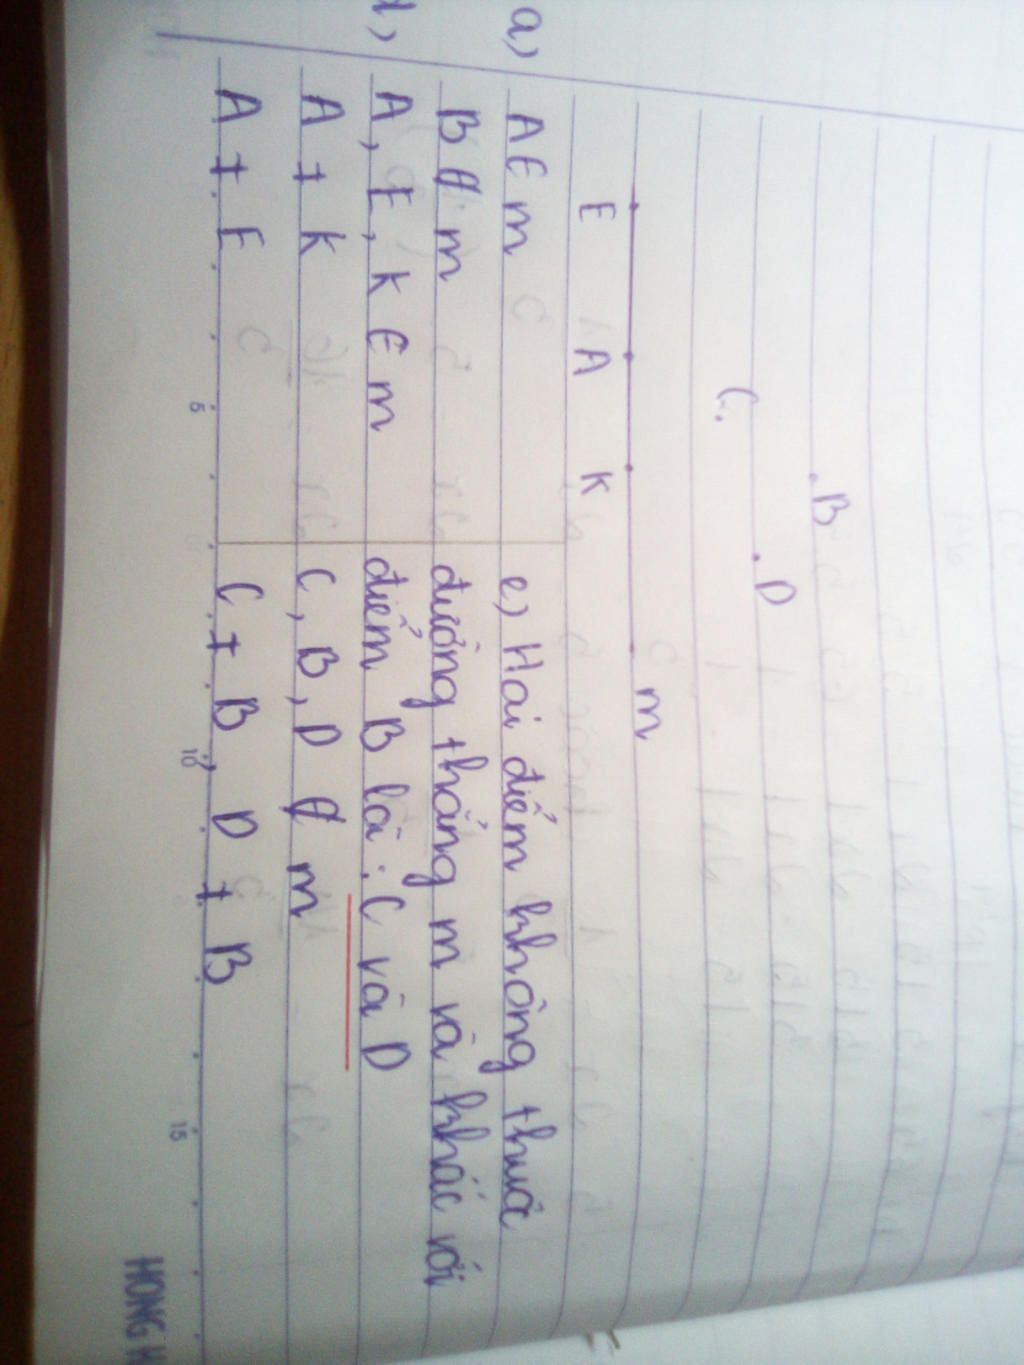 B
C D
m
E A K
a) A ∈ m
B ∉ m
d) A, E, K ∈ m
A ≠ K
A ≠ E
e) Hai điểm không thuộc
đường thẳng m và khác với
điểm B là: C và D
C, B, D ∉ m
C ≠ B, D ≠ B
5 10 15
HONG H